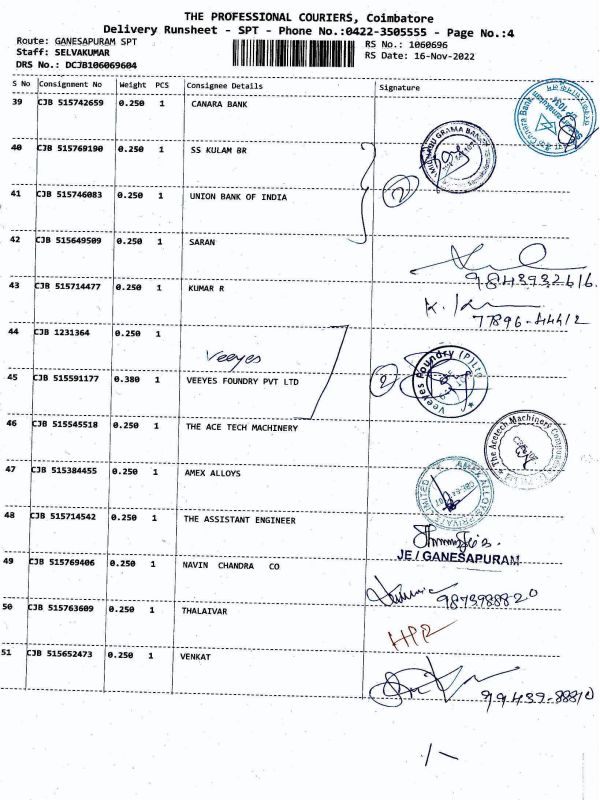 THE PROFESSIONAL COURIERS, Coimbatore
Delivery Runsheet - SPT - Phone No.:0422-3505555 - Page No.:4
Route: GANESAPURAM SPT
Staff: SELVAKUMAR
DRS No.: DCJB106069604
RS No.: 1060696
RS Date: 16-Nov-2022
S No Consignment No Weight PCS Consignee Details Signature
39 CJB 515742659 0.250 1 CANARA BANK
40 CJB 515769190 0.250 1 SS KULAM BR
2
41 CJB 515746083 0.250 1 UNION BANK OF INDIA
42 CJB 515649509 0.250 1 SARAN
43 CJB 515714477 0.250 1 KUMAR R
77896-44412
44 CJB 1231364 0.250 1
Veeyes
45 CJB 515591177 0.380 1 VEEYES FOUNDRY PVT LTD 2
Veeyes Foundry (P) Ltd
46 CJB 515545518 0.250 1 THE ACE TECH MACHINERY
The Acetech Machinery Components
47 CJB 515384455 0.250 1 AMEX ALLOYS
AMEX ALLOYS PRIVATE LIMITED
48 CJB 515714542 0.250 1 THE ASSISTANT ENGINEER
JE / GANESAPURAM
49 CJB 515769406 0.250 1 NAVIN CHANDRA CO
9873988820
50 CJB 515763609 0.250 1 THALAIVAR
51 CJB 515652473 0.250 1 VENKAT
99439-88810